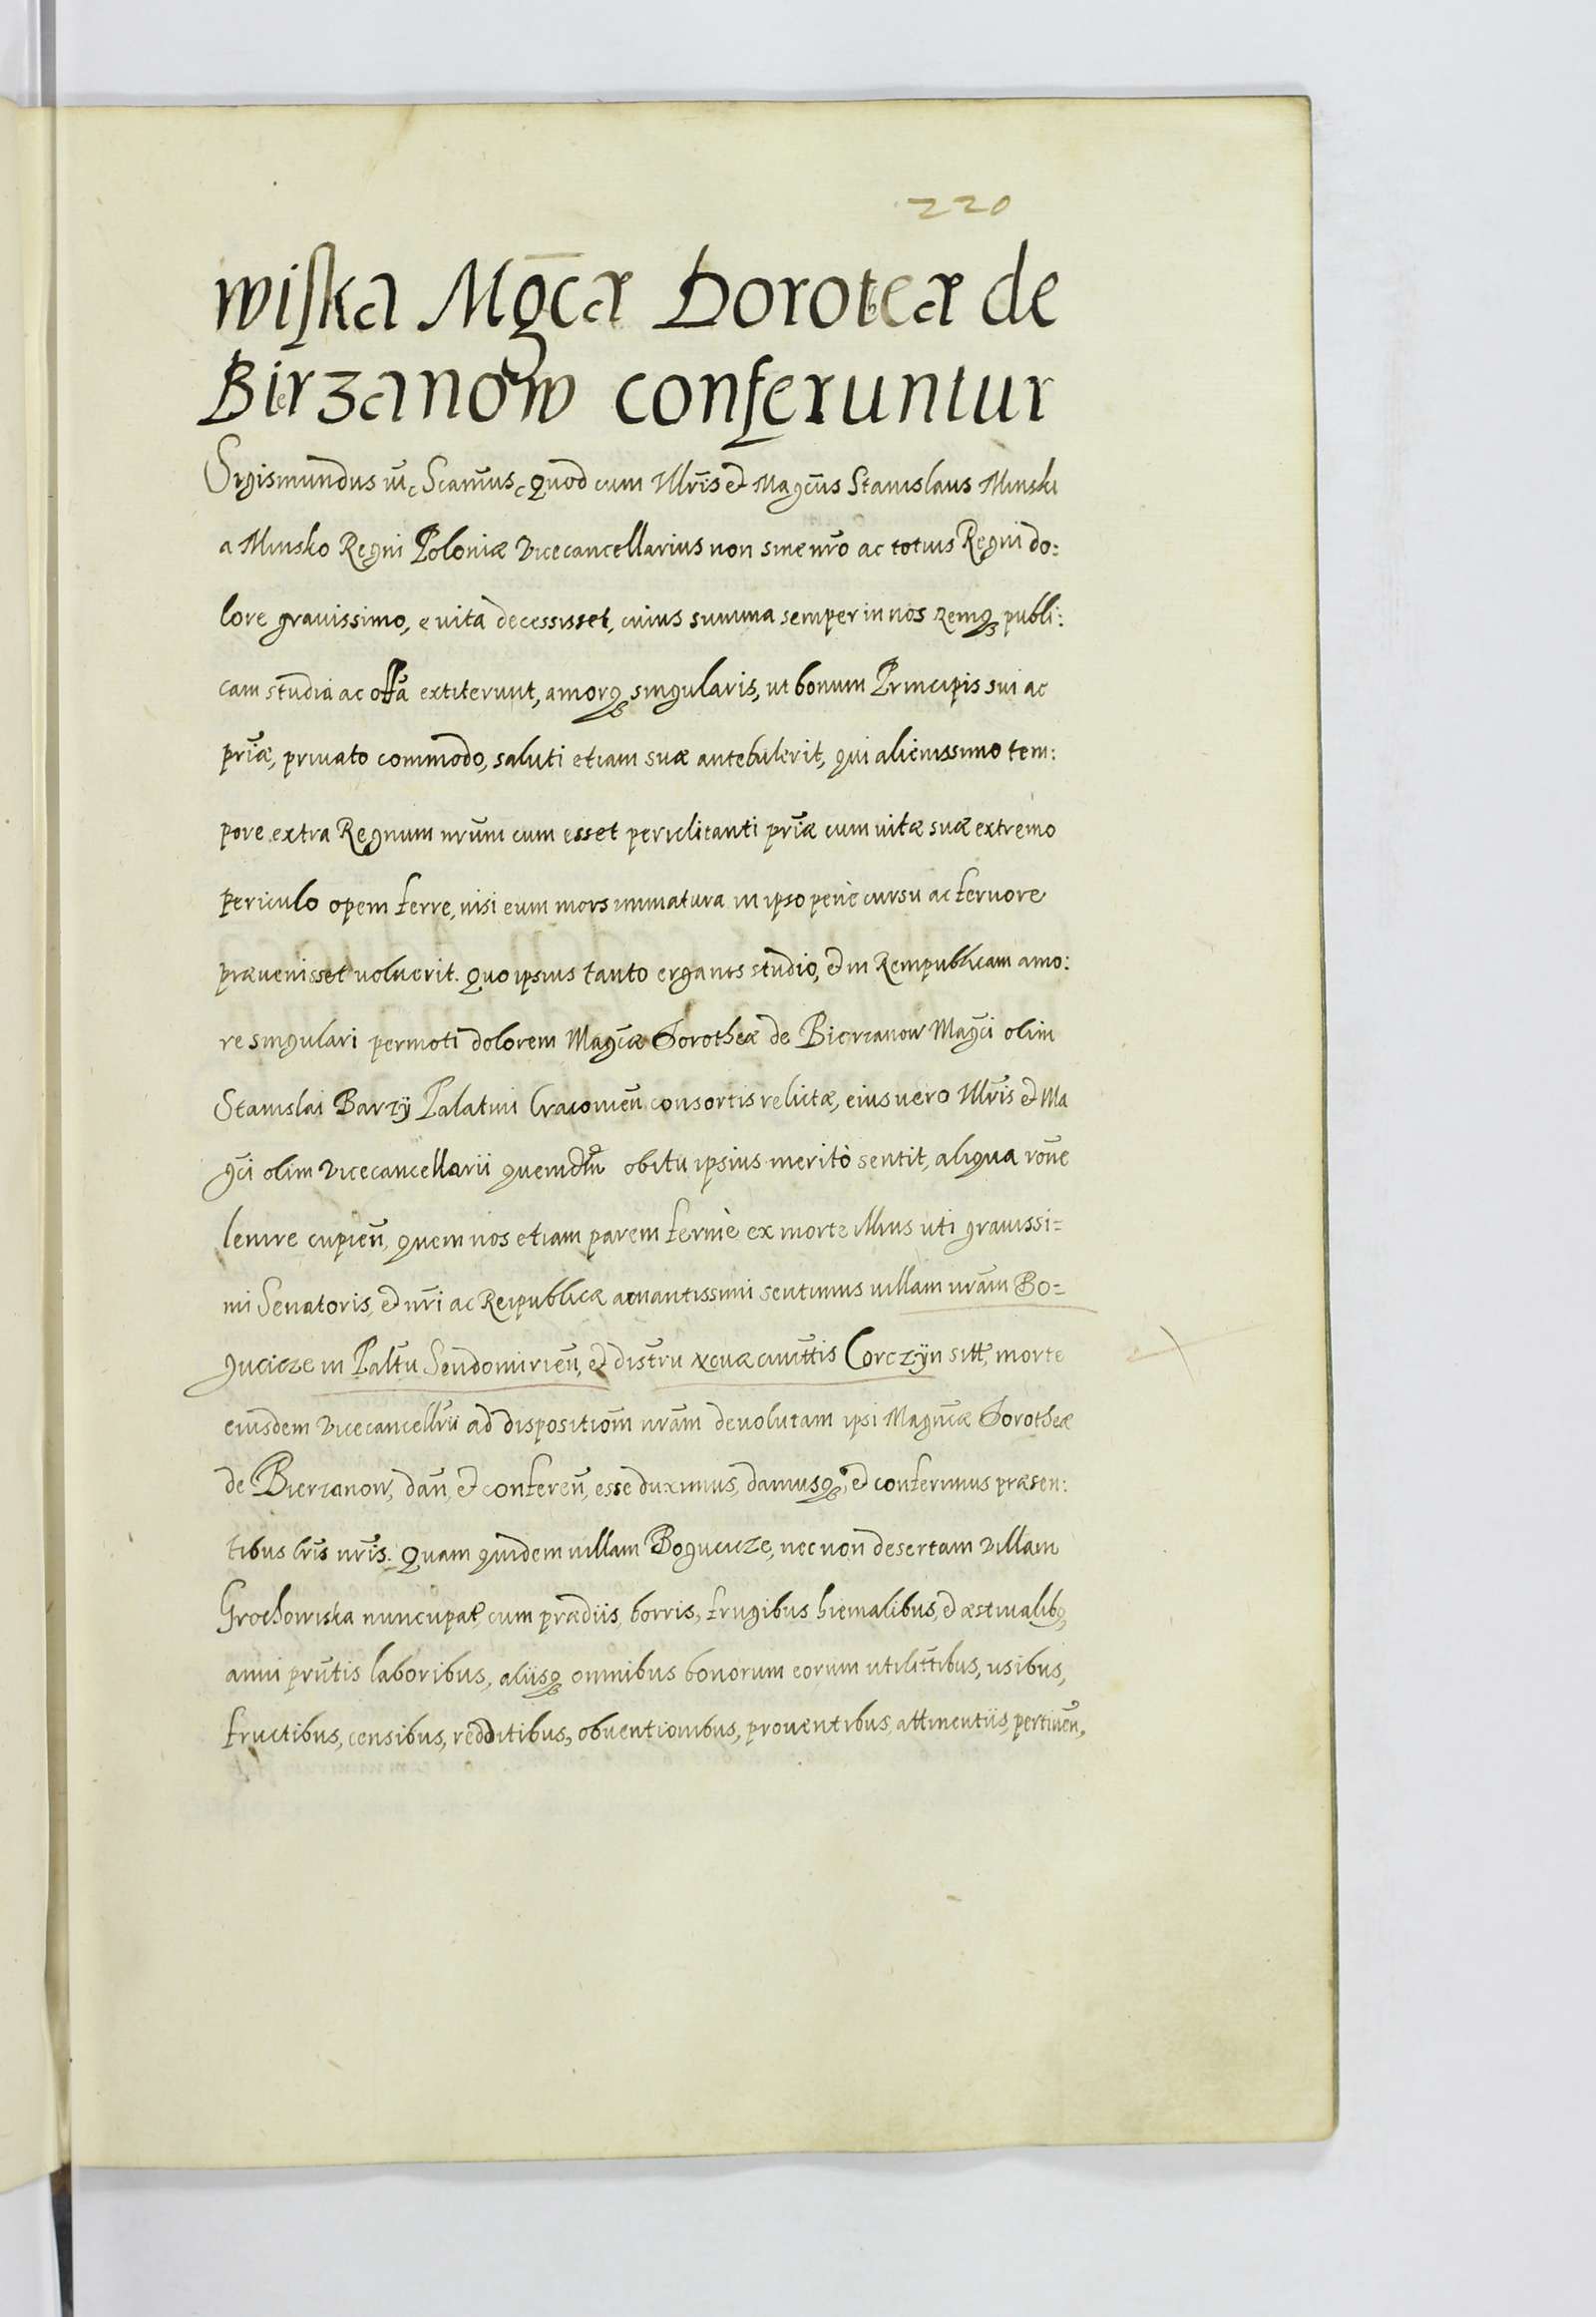 220
wiſka Mgcæ Doroteæ de
Bierzanow conferuntur
Sigismundus etc Scamus, Quod cum Illris et Magcus Stanislaus Minski
a Minsko Regni Poloniæ Vicecancellarius non sine nro ac totius Regni do:
lore grauissimo, e uita decessisset, cuius summa semper in nos remq publi:
cam studia ac offa extiterunt, amorq singularis, ut bonum Principis sui ac
priæ, priuato commodo, saluti etiam suæ antetulerit, qui alienissimo tem:
pore extra Regnum nrum cum esset periclitanti priæ cum uitæ suæ extremo
periculo opem ferre, nisi eum mors immatura in ipso penè cursu ac feruore
præuenisset uoluerit. Quo ipsius tanto erga nos studio, et in Rempublicam amo:
re singulari permoti dolorem Magcæ Dorotheæ de Bierzanow Magci olim
Stanislai Barzÿ Palatini Cracouien consortis relictæ, eius uero Illris et Ma
gci olim Vicecancellarii quem obitu ipsius meritò sentit, aliqua roue
lenire cupien, quem nos etiam parem fermè ex morte illius uti grauissi=
mi Senatoris, et nri ac Reipublicæ amantissimi sentimus uillam nram Bo=
gucicze in Paltu Sendomirien, et distru Nouæ ciuittis Corczÿn sitt, morte
eiusdem Vicecancellrii ad dispositiom nram deuolutam ipsi Magncæ Dorotheæ
de Bierzanow, dan, et conferen, esse duximus, damusq, et conferimus præsen:
tibus lris nris. Quam quidem uillam Bogucicze, nec non desertam Villam
Grochowiska nuncupat, cum prædiis, horris, frugibus hiemalibus, et æstiualibq
anni prntis laboribus, aliisq omnibus bonorum eorum utilittibus, usibus,
fructibus, censibus, redditibus, obuentionibus, prouentibus, attinentiis, pertinen,